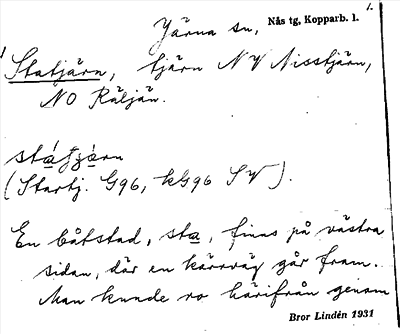 Järna sn, Nås tg, Kopparb. l. 1.
Statjärn, tjärn NV Nisstjärn,
NO Räljän.
(Startj. G96, kG96 SV).
En båtstad, sta, finns på västra
sidan, där en kärrväg går fram.
Man kunde ro härifrån genom
Bror Lindén 1931